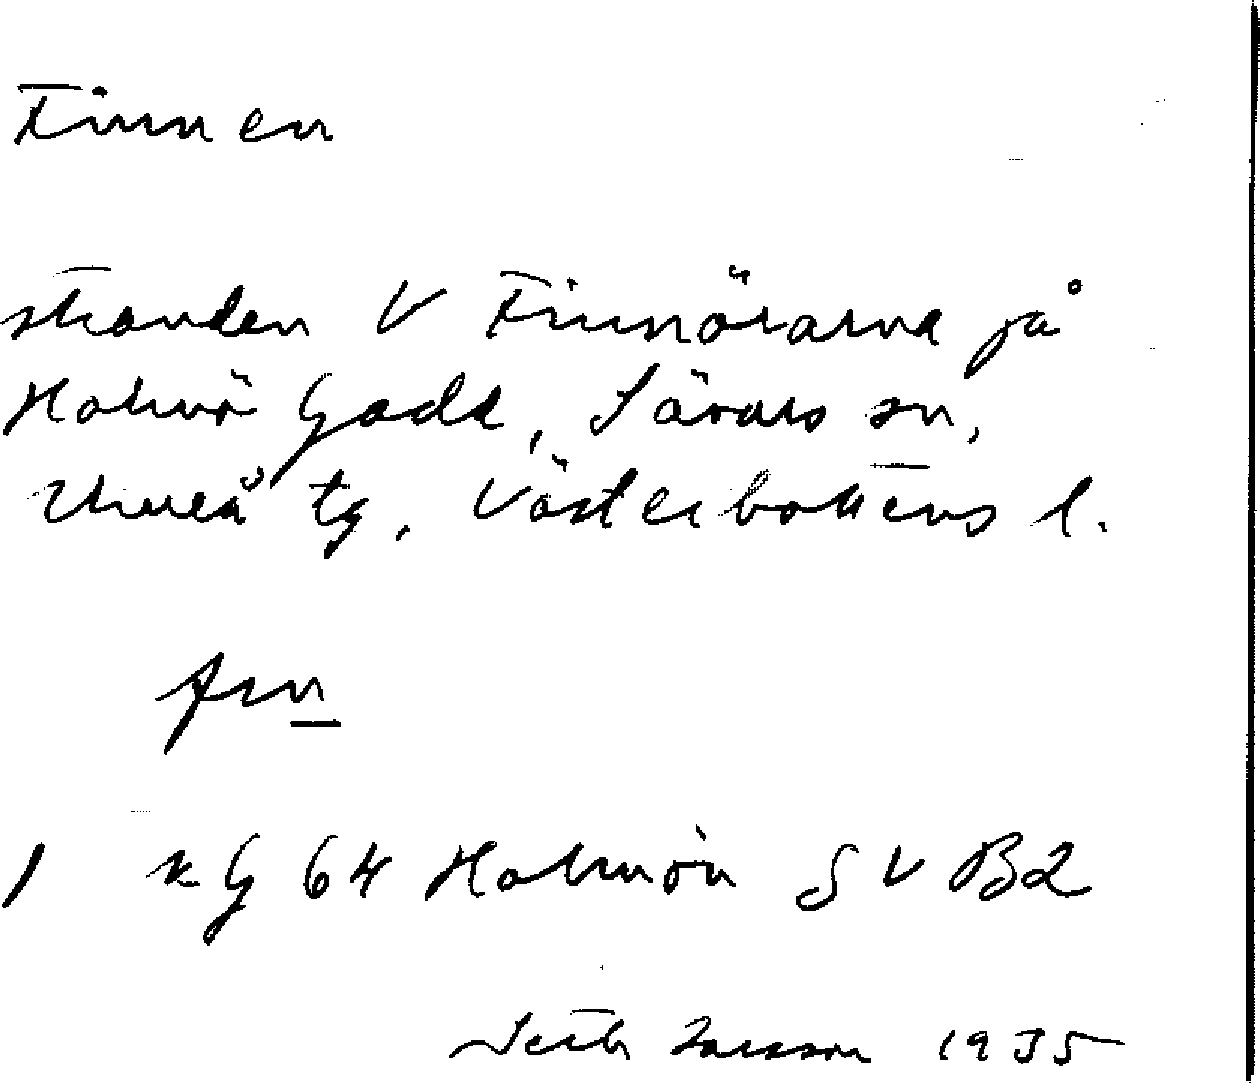 Finnen
stranden V Finnörarna på
Holmö Gadd, Sävars sn,
Umeå tg, Västerbottens l.
1 kG 64 Holmön SV B2
Seth Larsson 1935